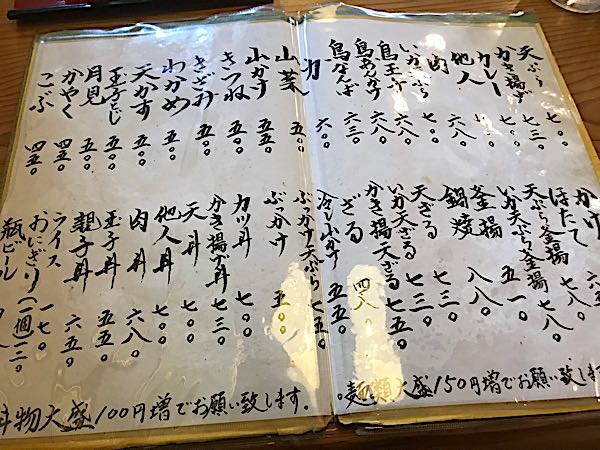 天ぷら 七〇〇
かき揚げ 七三〇
カレー
他人 七〇〇
肉 六八〇
いか天ぷら 七〇〇
鳥玉子 六八〇
鳥あんかけ 六八〇
鳥なんば 六三〇
力 六〇〇
山菜 五〇〇
山かす 五五〇
きつね 五〇〇
きざみ 五〇〇
わかめ 五〇〇
天かす 五〇〇
玉子とじ 五〇〇
月見 五〇〇
かやく 四五〇
こぶ 四五〇
かけ
ほたて
天ぷら釜揚 七八〇
いか天ぷら釜揚
釜揚 五一〇
鍋焼 八八〇
天ざる 七三〇
かき揚げ天ざる 七三〇
いか天ざる 七五〇
ざる 四八〇
冷し山かす
ぶっかけ天ぷら 七五〇
ぶっかけ 五五〇
カツ丼 七〇〇
かき揚げ丼 七三〇
天丼 七〇〇
他人丼 七〇〇
肉丼 六八〇
玉子丼 五五〇
親子丼 六五〇
ライス 一七〇
おにぎり(一個)一二〇
瓶ビール
麺類大盛150円増でお願い致します。
物大盛100円増でお願い致します。